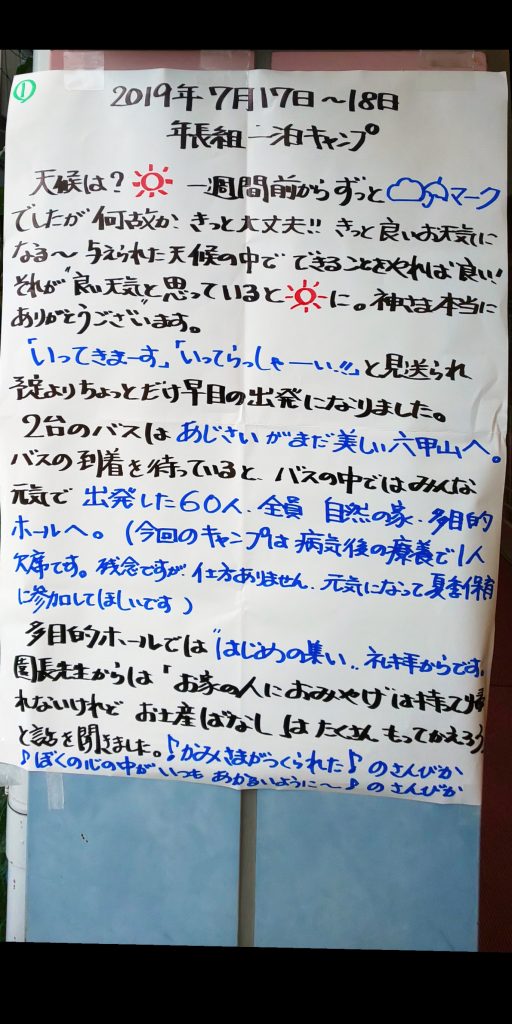 ①
2019年7月17日〜18日
年長組 一泊キャンプ
天候は？ 一週間前からずっと マーク
でしたが何故か、きっと大丈夫!! きっと良いお天気に
なる〜 与えられた天候の中で できることをやれば良い!
それが"良い天気"と思っていると に。神さま本当に
ありがとうございます。
「いってきまーす」「いってらっしゃーい!!」と見送られ
予定よりちょっとだけ早目の出発になりました。
2台のバスは あじさいがまだ美しい六甲山へ。
バスの到着を待っていると、バスの中ではみんな
元気で 出発した60人、全員 自然の家・多目的
ホールへ。(今回のキャンプは病気後の療養で1人
欠席です。残念ですが、仕方ありません、元気になって夏季保育
に参加してほしいです)
多目的ホールでは"はじめの集い".. 礼拝からです。
園長先生からは「お家の人におみやげは持って帰
れないけれど お土産ばなし はたくさん もってかえろう」
と話を聞きました。♪かみさまがつくられた♪ のさんびか
♪ぼくの心の中がいつも あかるいように〜♪ のさんびか